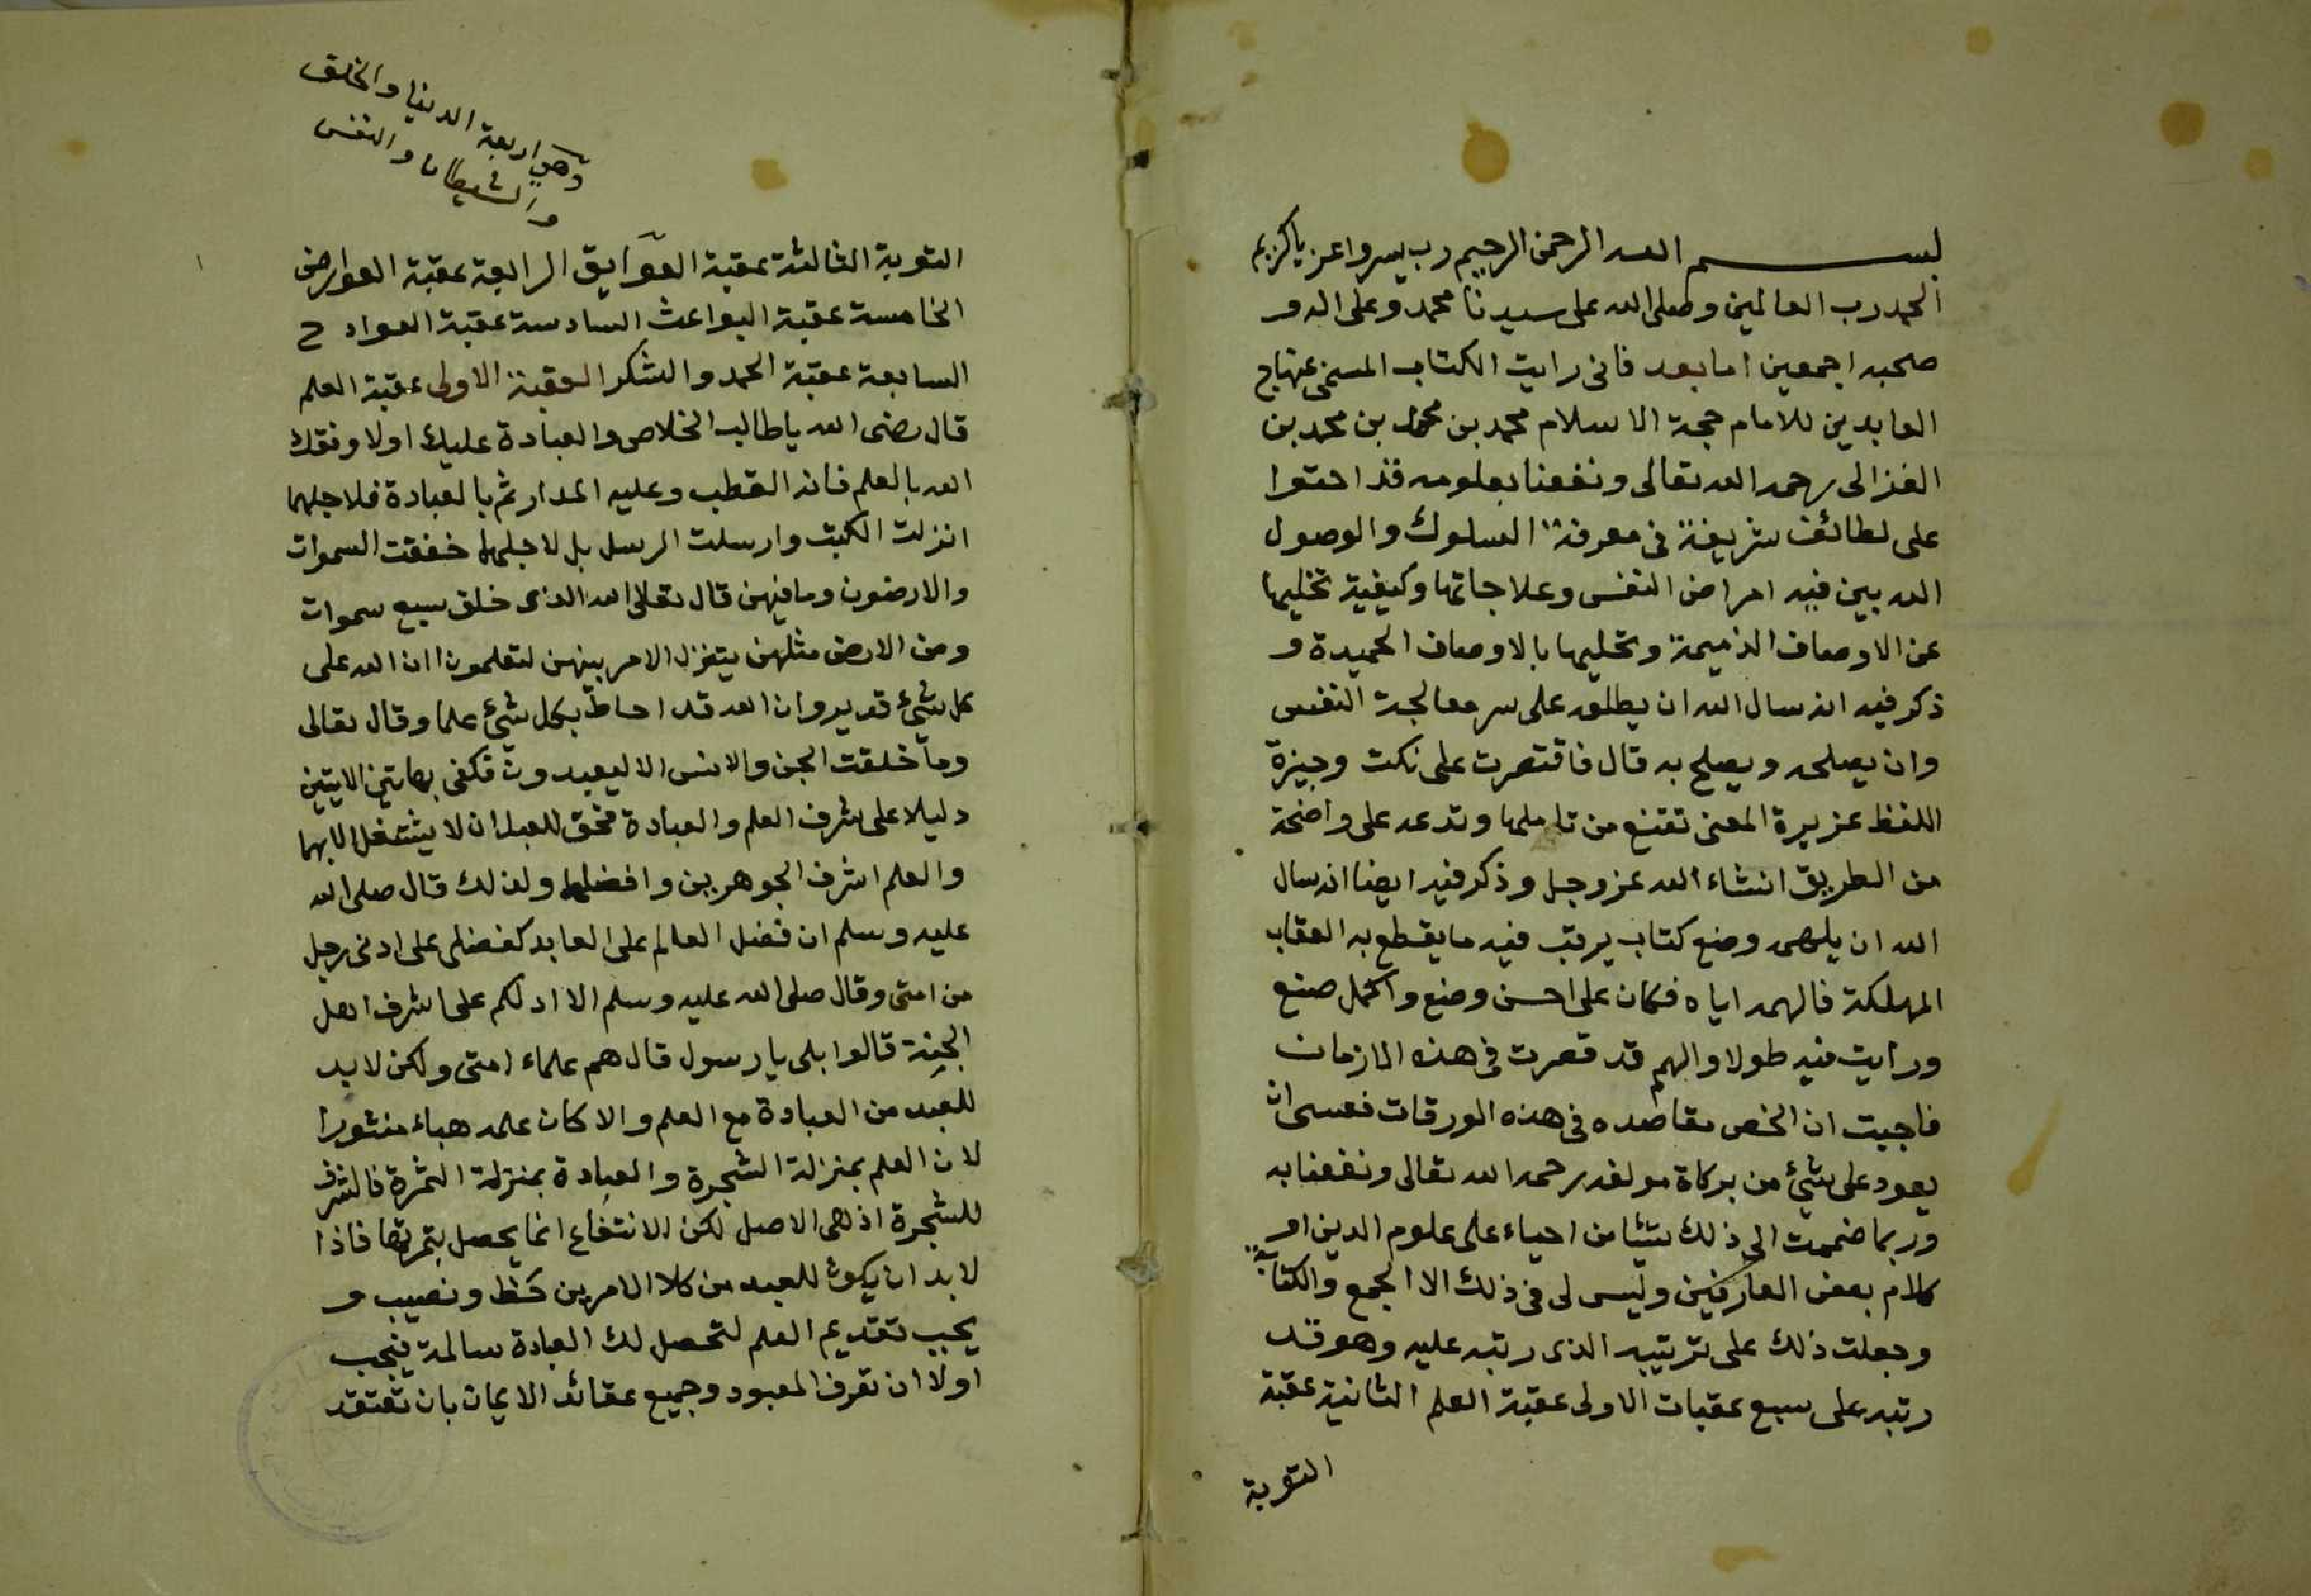 بسم الله الرحمن الرحيم رب يسر واعن ياكريم
الحمد رب العالمين وصلى الله على سيدنا محمد وعلى اله و
صحبه اجمعين امابعد فانى رايت الكتاب المسمى بمنهاج
العابدين للامام حجة الاسلام محمد بن محمد بن محمد بن
الغزالى رحمه الله تعالى ونفعنا بعلومه قد احتوا
على لطائف شريفة فى معرفة السلوك والوصول
الله بين فيه امراض النفس وعلاجاتها وكيفية تخليها
عن الاوصاف الذميمة وتحليها بالاوصاف الحميدة و
ذكر فيه انه سال الله ان يطلعه على سر معالجة النفس
وان يصلحه ويصلح به قال فاقتصرت على نكت وجيزة
اللفظ عزيرة المعنى تقنع من تاملها وتدعه على واضحة
من الطريق انشاء الله عز وجل وذكر فيه ايضا انه سال
الله ان يلهمه وضع كتاب يرتب فيه مايقطع به العقاب
المهلكة فالهمه اياه فكان على احسن وضع واكمل صنع
ورايت فيه طولا والهم قد قصرت فى هذه الازمان
فاحببت ان الخص مقاصده فى هذه الورقات فعسى ان
يعود على شئ من بركاة مولفه رحمه الله تعالى ونفعنا به
وربما ضممت الى ذلك شيئا من احياء على علوم الدين او
كلام بعض العارفين وليس لى فى ذلك الا الجمع والكتابة
وجعلت ذلك على ترتيبه الذى رتبه عليه وهو قد
رتبه على سبع عقبات الاولى عقبة العلم الثانية عقبة
التوبة
وهي اربعة الدنيا والخلق
والشيطان والنفس
التوبة الثالثة عقبة العوايق الرابعة عقبة العوارض
الخامسة عقبة البواعث السادسة عقبة العوادح
السابعة عقبة الحمد والشكر العقبة الاولى عقبة العلم
قال رضى الله ياطالب الخلاص والعبادة عليك اولا وفقك
الله بالعلم فانه القطب وعليه المدار ثم بالعبادة فلاجلهما
انزلت الكتب وارسلت الرسل بل لاجلهما خلقت السموات
والارضون ومافيهن قال تعالى الله الذى خلق سبع سموات
ومن الارض مثلهن يتنزل الامر بينهن لتعلموا ان الله على
كل شئ قدير وان الله قد احاط بكل شئ علما وقال تعالى
وما خلقت الجن والانس الا ليعبدون فكفى بهاتين الايتين
دليلا على شرف العلم والعبادة فحق للعبد ان لا يشتغل الا بهما
والعلم اشرف الجوهرين وافضلهما ولذلك قال صلى الله
عليه وسلم ان فضل العالم على العابد كفضلى على ادنى رجل
من امتى وقال صلى الله عليه وسلم الا ادلكم على اشرف اهل
الجنة قالوا بلى يا رسول قال هم علماء امتى ولكن لابد
للعبد من العبادة مع العلم والا كان علمه هباء منثورا
لان العلم بمنزلة الشجرة والعبادة بمنزلة الثمرة فالشرف
للشجرة اذ هى الاصل لكن الانتفاع انما يحصل بثمرتها فاذا
لابد ان يكون للعبد من كلا الامرين حظ ونصيب و
يجب تقديم العلم لتحصل لك العبادة سالمة فيجب
اولا ان تعرف المعبود وجميع عقائد الايمان بان تعتقد